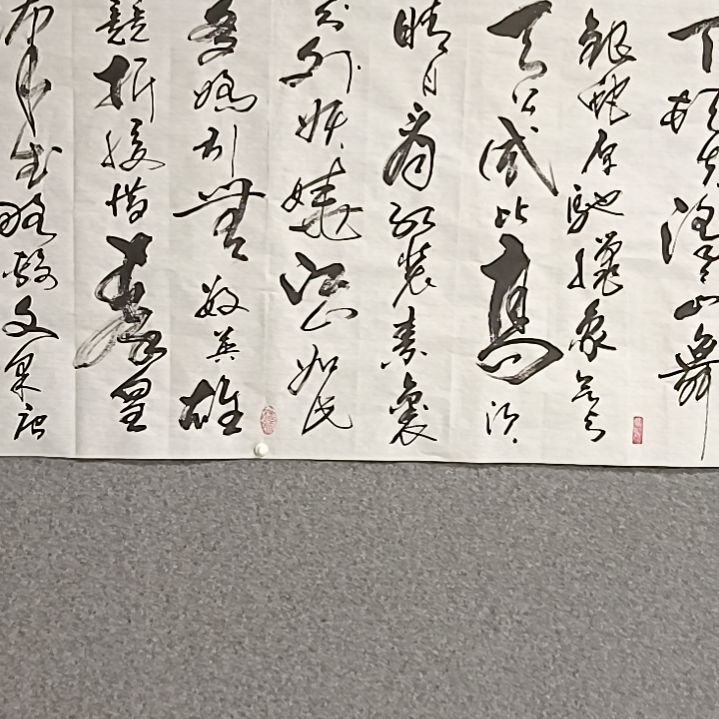 下頓失滔滔山舞
銀蛇原馳蠟象欲与
天公试比高须
晴日看红装素裹
分外妖娆江山如此
多娇引無数英雄
競折腰惜秦皇
武略输文采唐